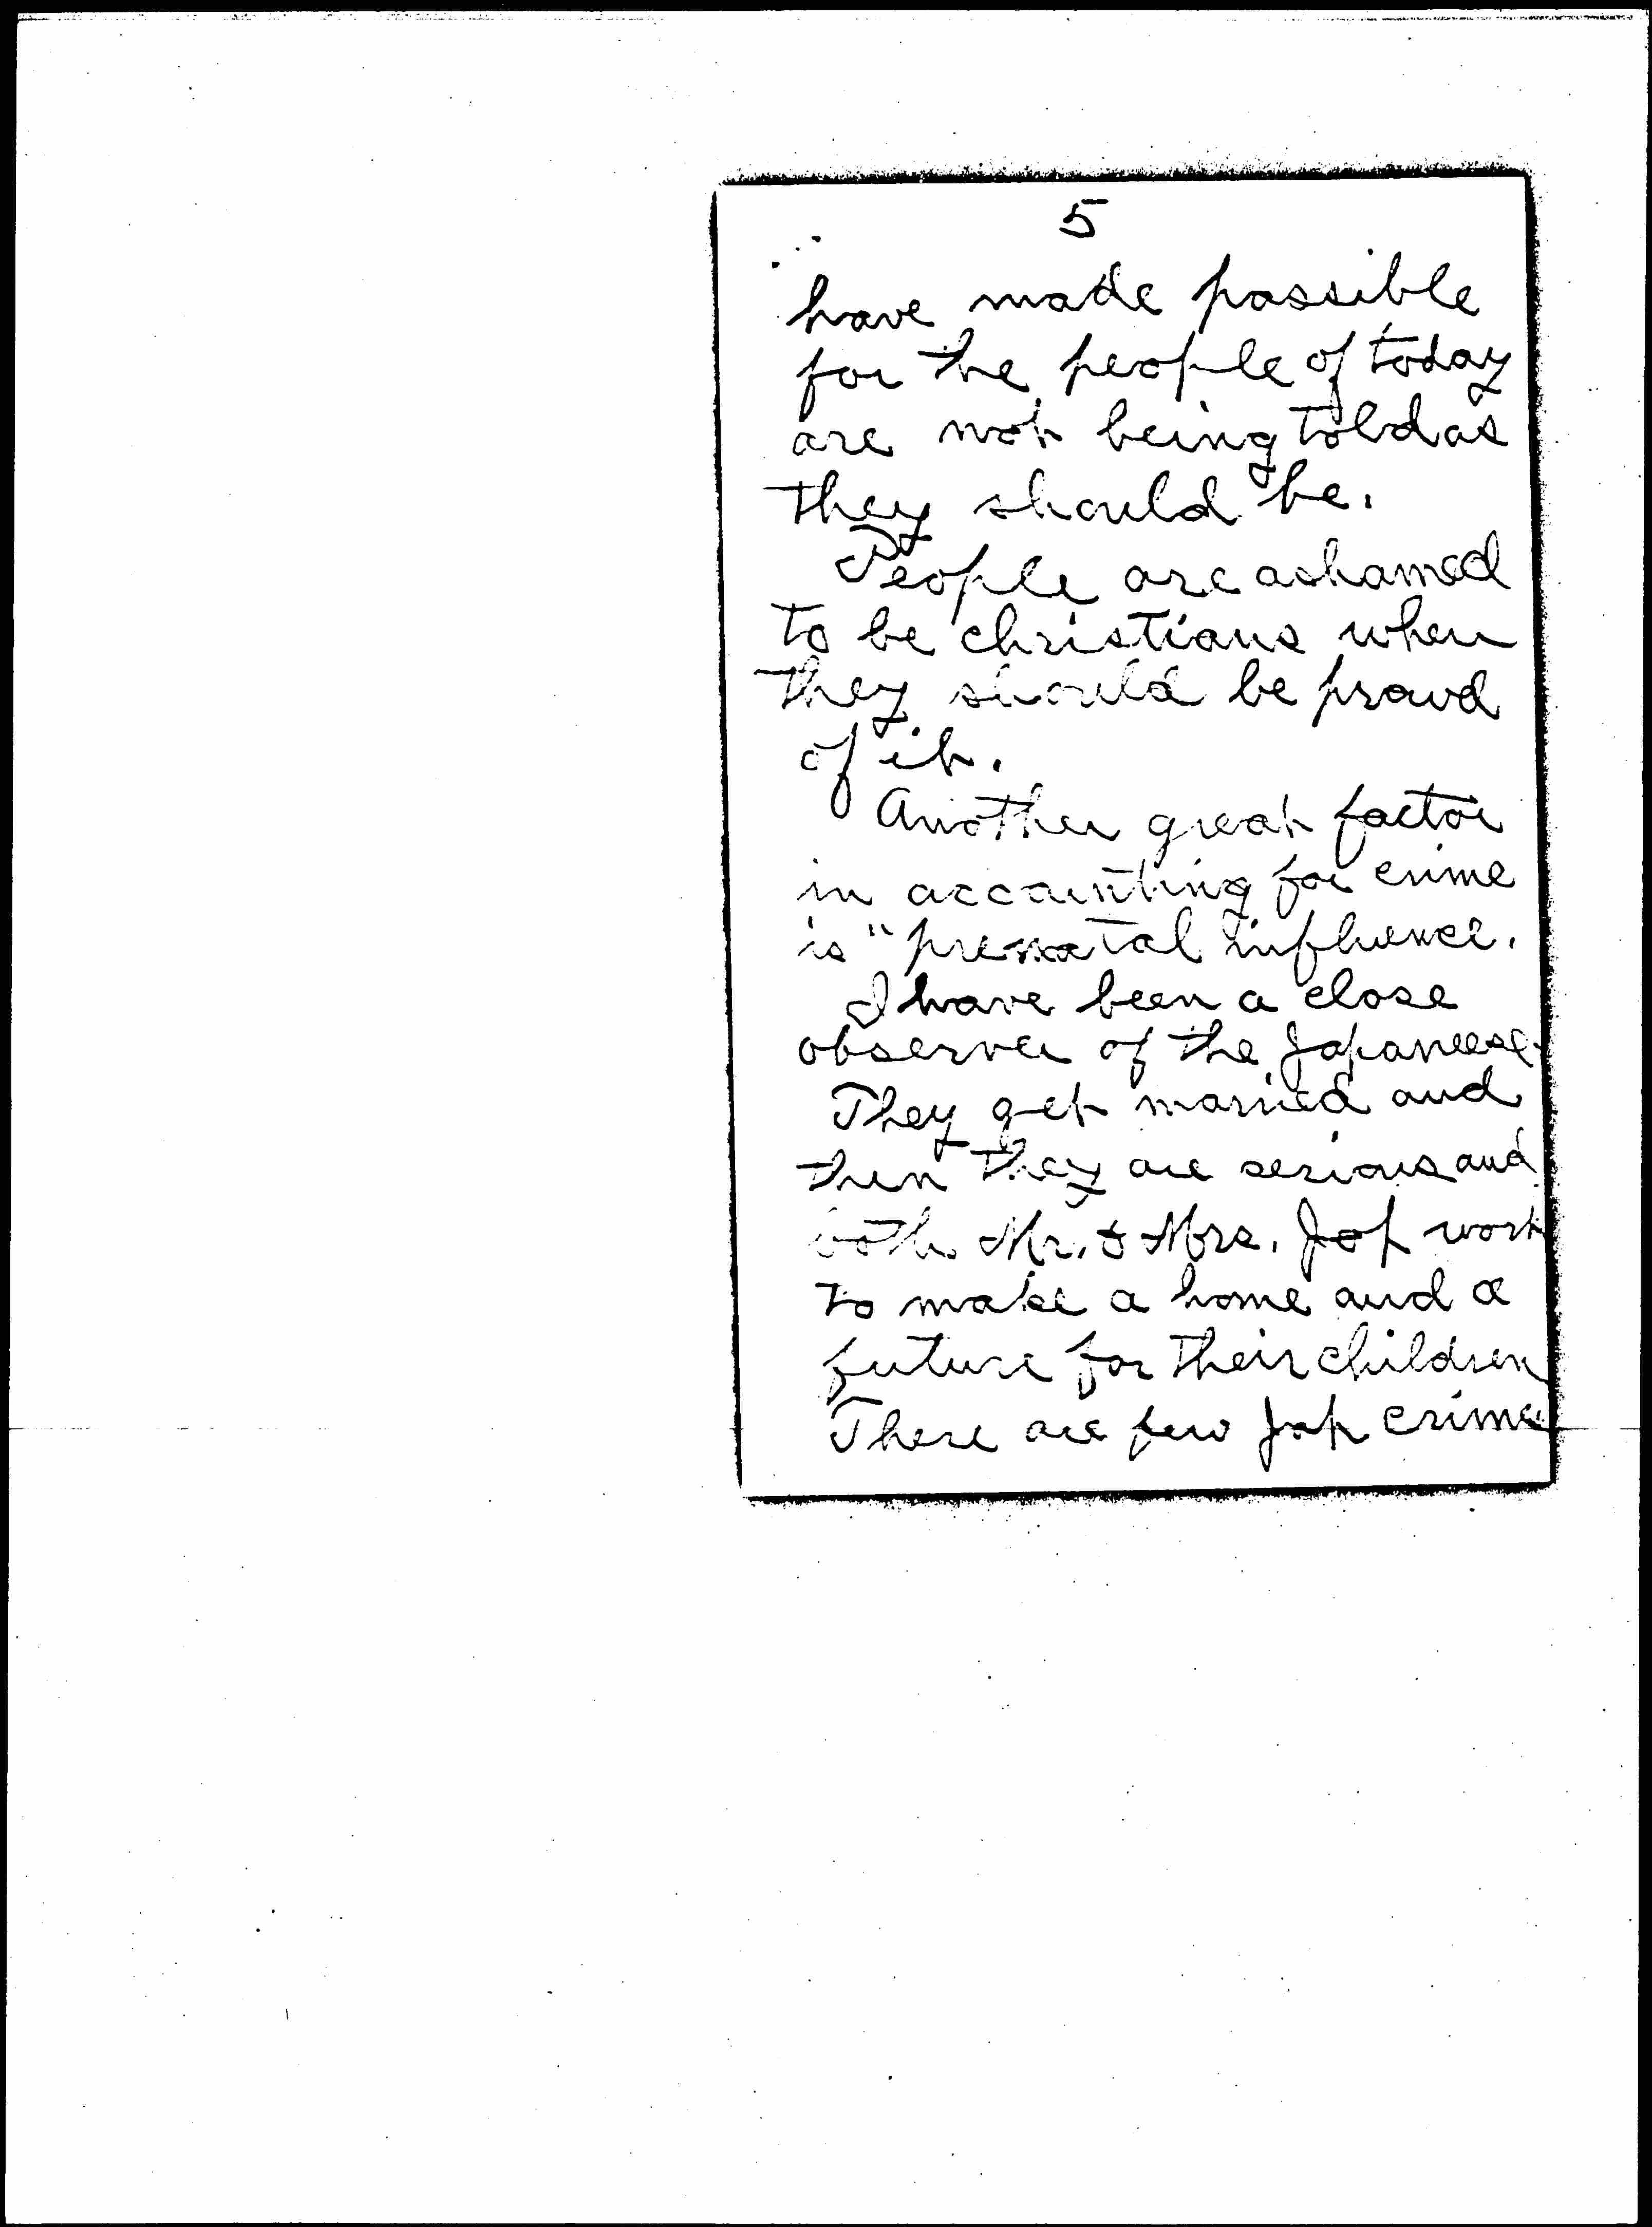 5
have made possible
for the people of today
are not being told as
they should be.
People are ashamed
to be christians when
they should be proud
of it.
Another great factor
in accounting for crime
is "prenatal influence.
I have been a close
observer of the Japaneese.
They get married and
then they are serious and
both Mr. & Mrs. Jap work
to make a home and a
future for their children
There are few Jap crime